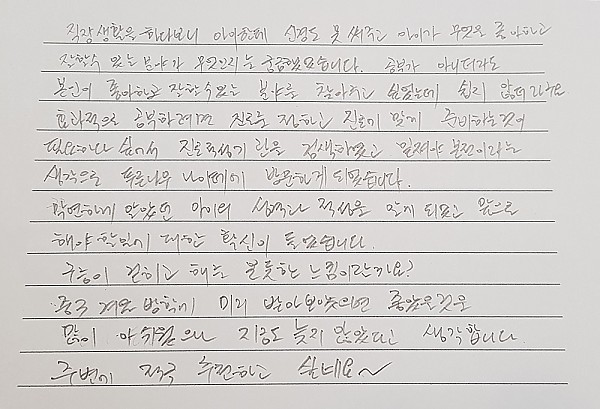 직장생활을 하다보니 아이한테 신경도 못 써주고 아이가 무엇을 좋아하고
잘할수 있는 분야가 무엇인지는 궁금했었습니다. 공부가 아니더라도
본인이 좋아하고 잘할수있는 분야를 찾아주고 싶었는데 쉽지 않더라구요.
효과적으로 공부하려면 진로를 정하고 진로에 맞게 준비하는것이
필요하다 싶어서 진로적성기관을 검색하였고 밑져야 본전이라는
생각으로 푸른나무 나이떼에 방문하게 되었습니다.
막연하게 알았던 아이의 성격과 적성을 알게 되었고 앞으로
해야 할일에 대한 확신이 들었습니다.
구름이 걷히고 해는 불쑥한 느낌이랄까요?
중국 겨울 방학에 미리 받아보았으면 좋았을것을
많이 아쉬웠으나 지금도 늦지 않았다고 생각합니다.
주변에 적극 추천하고 싶네요~